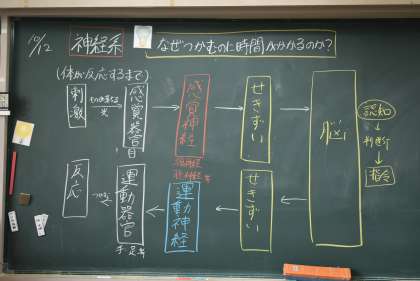 10/12
神経系
なぜつかむのに時間がかかるのか?
(体が反応するまで)
刺激
光
感覚器官
目
感覚神経
せきずい
脳
認知
判断
指令
反応
つかむ
運動器官
手足
運動神経
せきずい